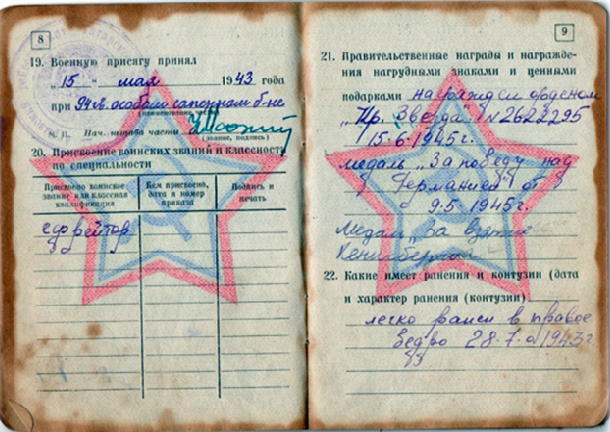 8
19. Военную присягу принял
„15“ мая 1943 года
при 94 м. особом саперном б-не
(наименование части)
М. П. Нач. штаба части
(звание, подпись)
20. Присвоение воинских званий и классность
по специальности
Присвоено воинское звание или классная квалификация
Кем присвоено, дата и номер приказа
Подпись и печать
ефрейтор
9
21. Правительственные награды и награжде-
ния нагрудными знаками и ценными
подарками награжден орденом
„Кр. Звезда“ №2623295
15.6.1945г.
медаль „За победу над
Германией от
9.5.1945г.
Медаль „За взятие
Кенигберга
22. Какие имеет ранения и контузии (дата
и характер ранения (контузии)
легко ранен в правое
бедро 28.7.1943г.